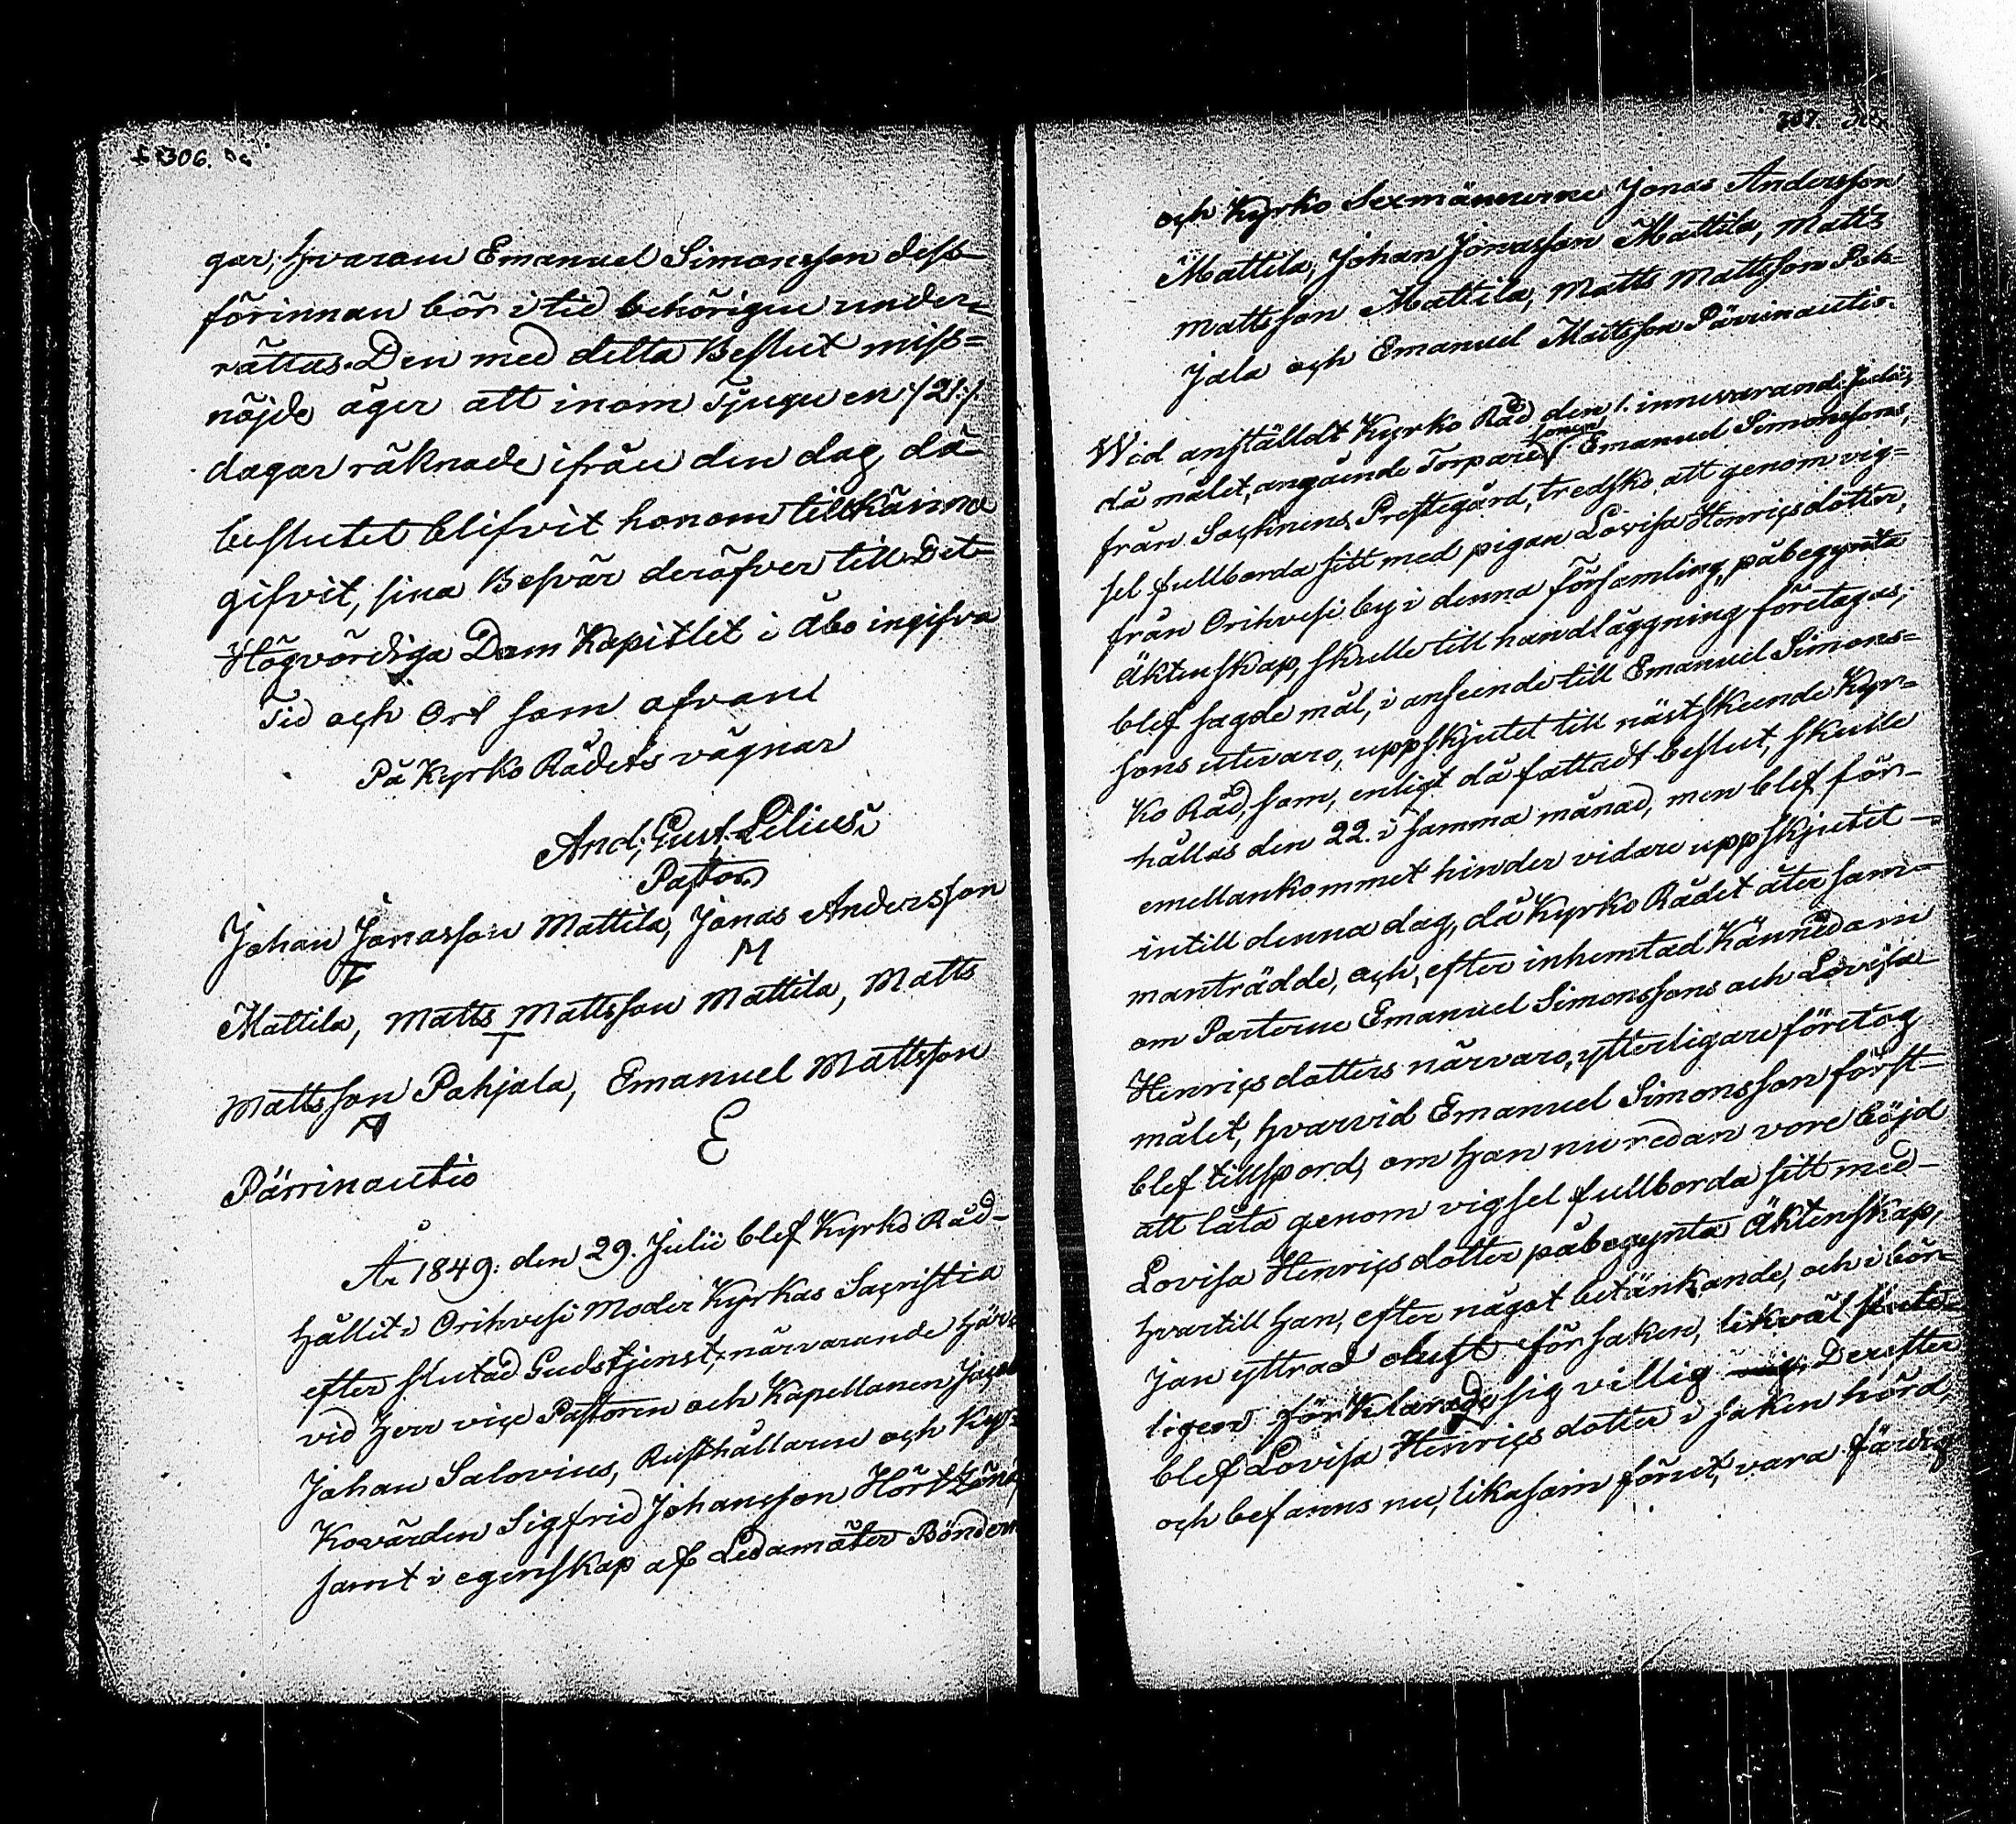 306.
gar, hvarom Emanuel Simonsson dess-
förinnan bör i tid behörigen under-
rättas. Den med detta Beslut miss=
nöjde äger att inom Tjugu en /:21:/
dagar räknade ifrån den dag, då
beslutet blifvit honom tillkänna
gifvit, sina Besvär deröfver till Det
Högvördiga Dom Kapitlet i Åbo ingifva
Tid och Ort som ofvan
På Kyrko Rådets vägnar
And. Gust. Lilius
Pastor
Johan Jonasson Mattila, Jonas Andersson
M
Mattila, Matts Mattsson Mattila, Matts
Mattsson Pahjala, Emanuel Mattsson
E
Pärrinautio
År 1849. den 29. Julii blef Kyrko Råd-
hållit i Orihvesi Moder Kyrkas Sacristia
efter slutad Gudstjenst, närvarande här-
vid Herr vice Pastoren och Kapellanen
Johan Salovius, Rusthållaren och Kyr-
kovärden Sigfrid Johansson
samt i egenskap af Ledamöter Bönderne
307.
och Kyrko Sexmännerne Jonas Andersson
Mattila, Johan Jonasson Mattila, Matts
Mattsson Mattila, Matts Mattsson Poh-
jala och Emanuel Mattsson Pärrinautio.
Wid anställdt Kyrko Råd den 1. innevarande Julii,
då målet, angående Torpare sonen Emanuel Simonssons,
från Socknens Prestegård, tredsko att genom vig=
sel fullborda sitt med pigan Lovisa Henricsdotter,
från Orihvesi by i denna Församling, påbegynta
Äktenskap, skulle till handläggning företagas,
blef sagde mål, i anseende till Emanuel Simons=
sons utevaro, uppskjutet till nästskeende Kyr=
ko Råd, som, enligt då fattadt beslut, skulle
hållas den 22. i samma månad, men blef för-
emellankommet hinder vidare uppskjutit
intill denna dag, då Kyrko Rådet åter sam-
manträdde, och, efter inhemtad Kännedom
om Parterne Emanuel Simonssons och Lovisa
Henricsdotters närvaro, ytterligare företog
målet, hvarvid Emanuel Simonsson först-
blef tillspord, om han nu redan vore böjd
att låta genom vigsel fullborda sitt med
Lovisa Henricsdotter påbegynta Äktenskap,
hvartill han, efter något betänkande, och i bör-
jan yttrad olust för saken, likväl slute-
ligen förklarade sig villig Derefter
blef Lovisa Henricsdotter i saken hörd,
och befanns nu, likasom förut, vara färdig